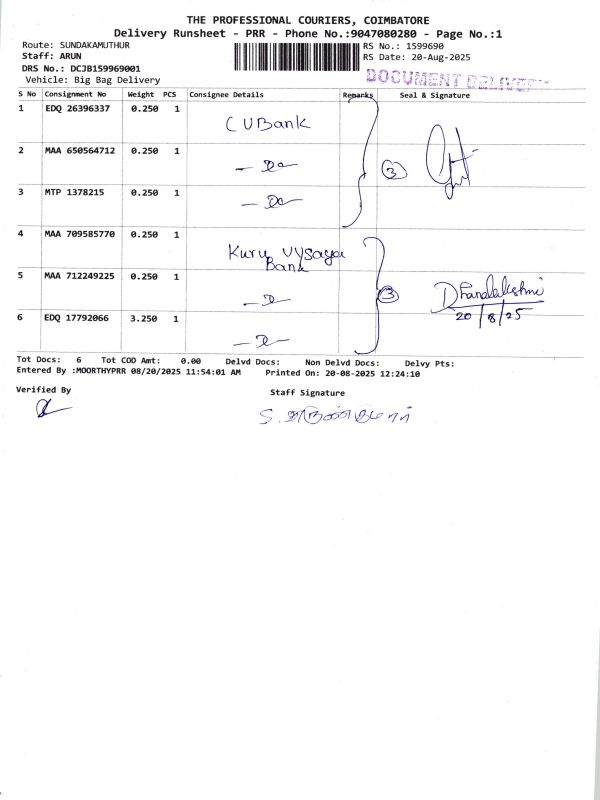 THE PROFESSIONAL COURIERS, COIMBATORE
Delivery Runsheet - PRR - Phone No.:9047080280 - Page No.:1
Route: SUNDAKAMUTHUR
RS No.: 1599690
Staff: ARUN
RS Date: 20-Aug-2025
DRS No.: DCJB159969001
DOCUMENT DELIVERY
Vehicle: Big Bag Delivery
S No Consignment No Weight PCS Consignee Details Remarks Seal & Signature
1 EDQ 26396337 0.250 1 CUBank
2 MAA 650564712 0.250 1 — Do — 3
3 MTP 1378215 0.250 1 — Do —
4 MAA 709585770 0.250 1 Kuru Vysaya Bank
5 MAA 712249225 0.250 1 3 Dhanalakshmi
20/8/25
6 EDQ 17792066 3.250 1
Tot Docs: 6 Tot COD Amt: 0.00 Delvd Docs: Non Delvd Docs: Delvy Pts:
Entered By :MOORTHYPRR 08/20/2025 11:54:01 AM Printed On: 20-08-2025 12:24:10
Verified By Staff Signature